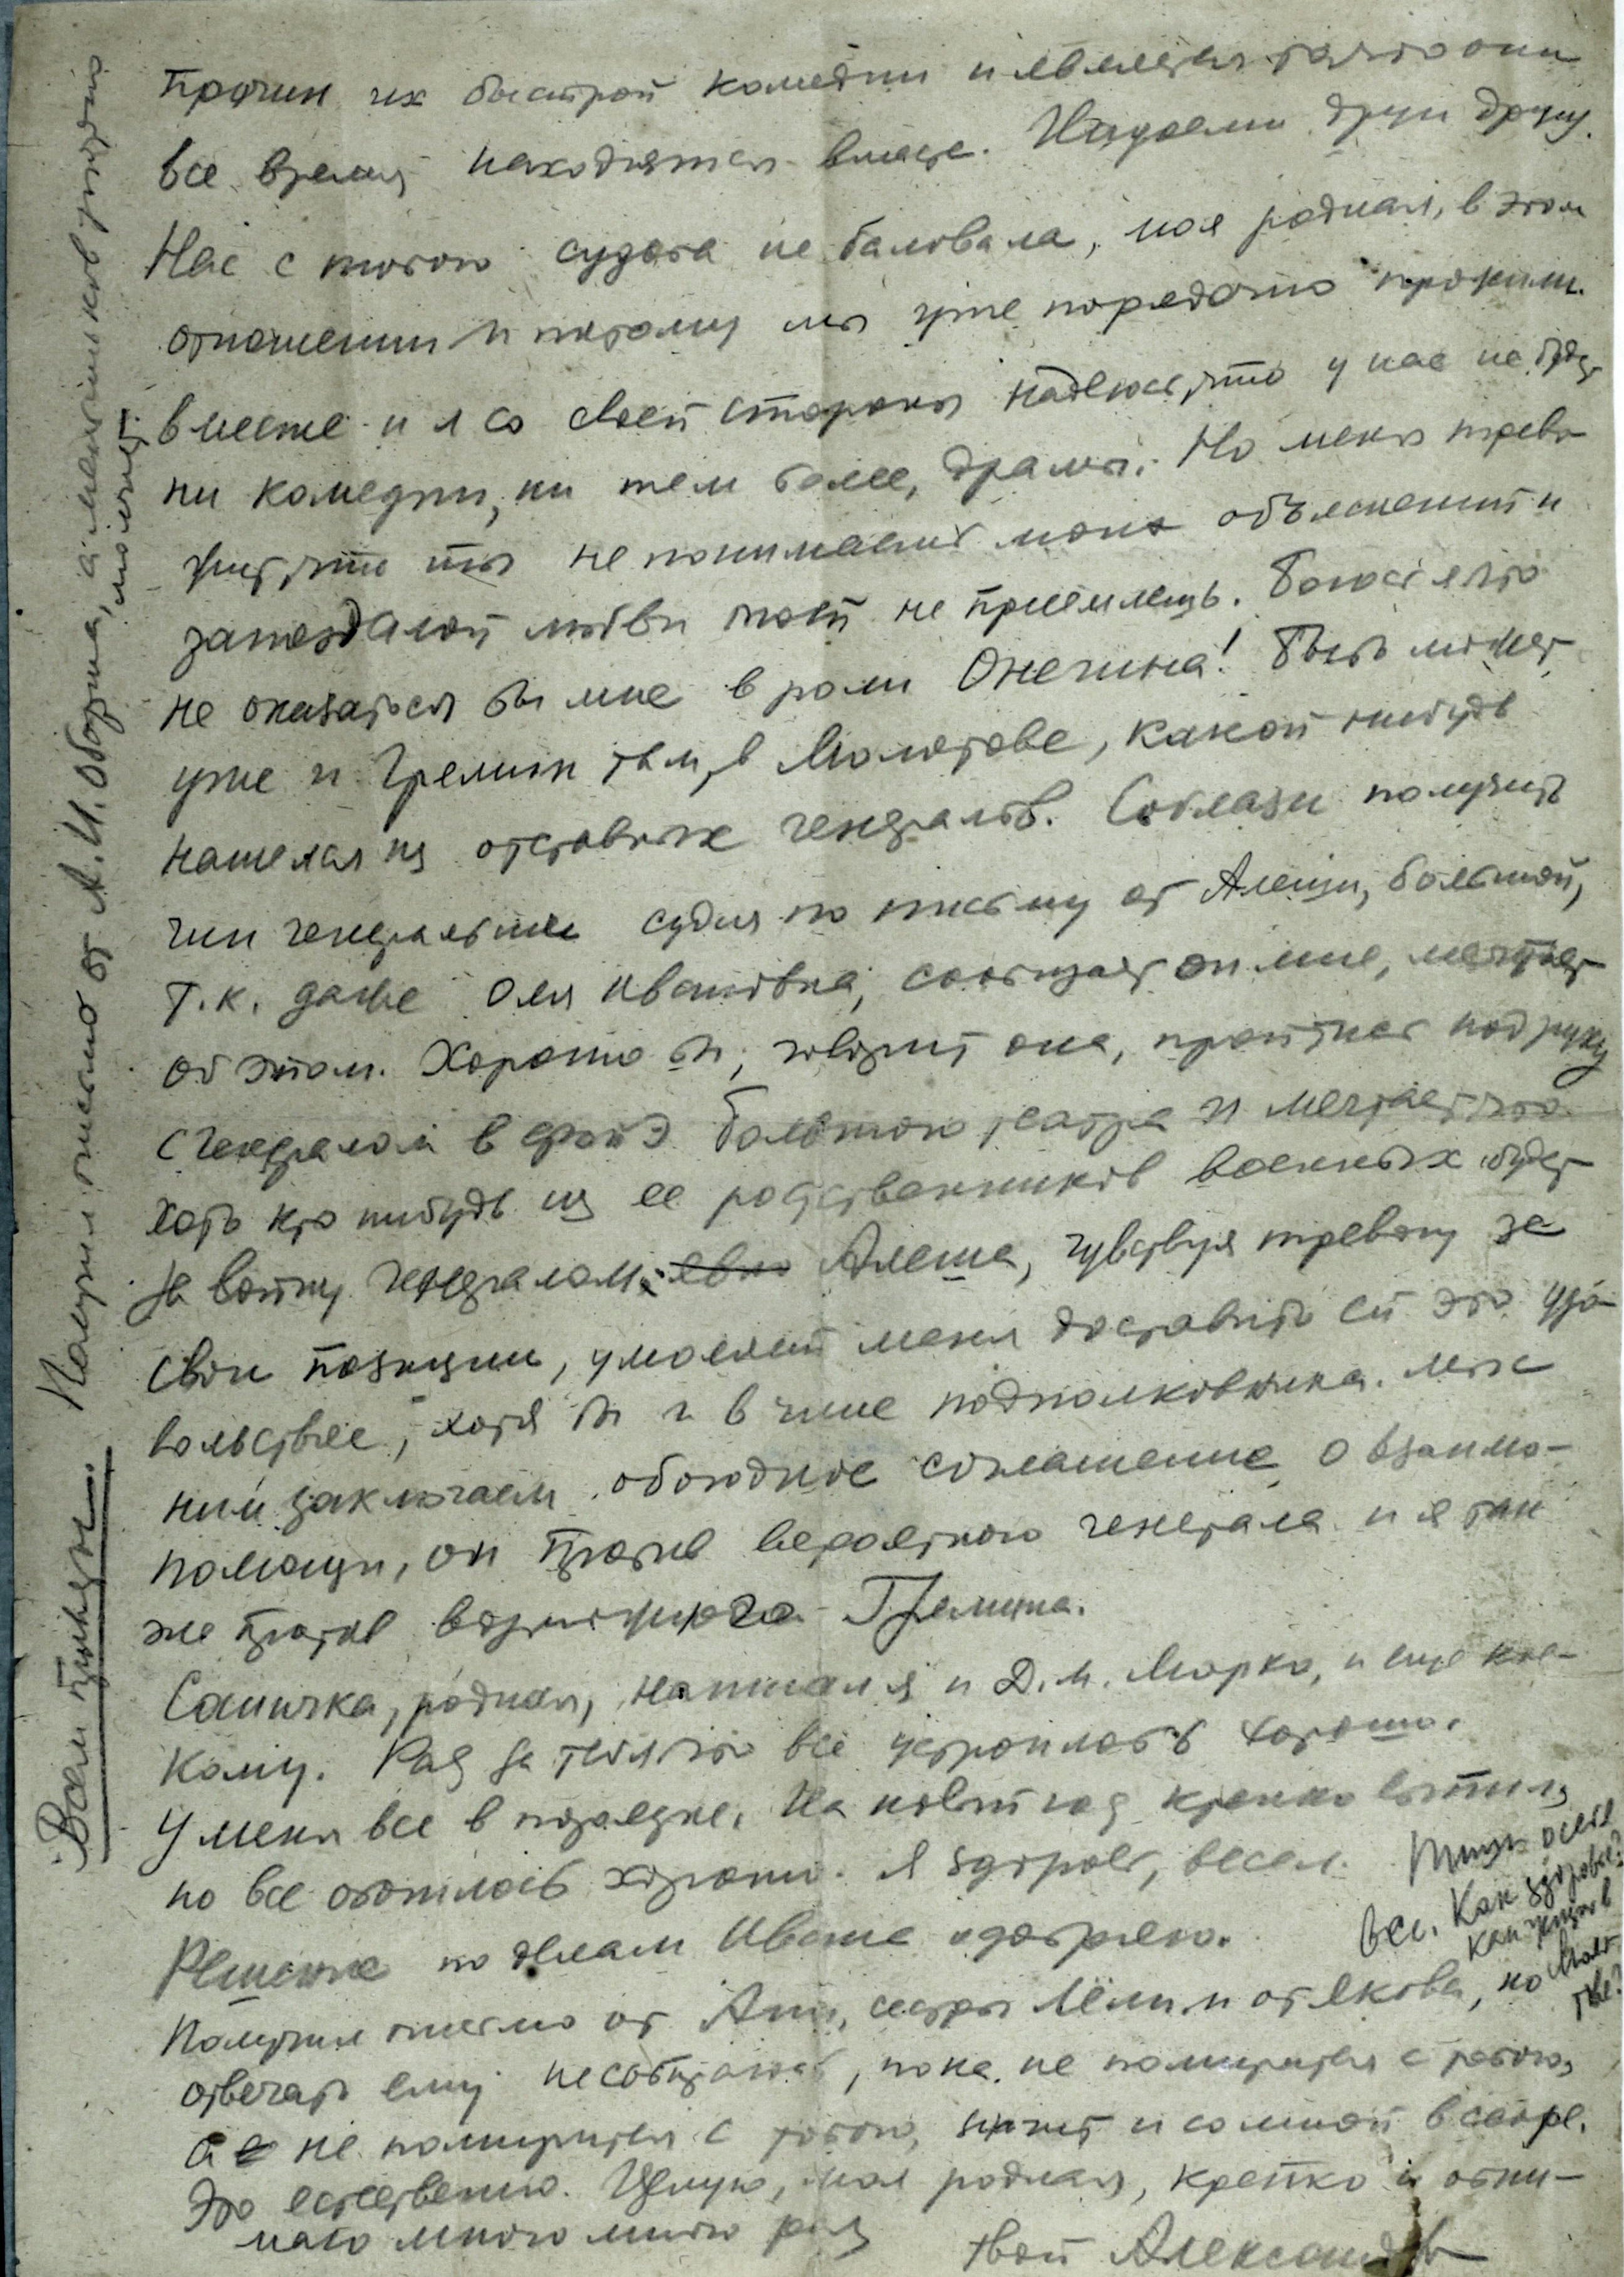 Причин их быстрой комедии и является то что они
все время находятся вместе. Надоели друг другу.
Нас с тобою судьба не баловала, моя родная, в этом
отношении и потому мы уже порядочно прожили
вместе и я со своей стороны надеюсь, что у нас не будет
ни комедии, ни тем более, драмы. Но меня трево-
жит, что ты не понимаешь моих объяснений и
запоздалой любви моей не приемлешь. Боюсь я что
не оказаться бы мне в роли Онегина! Быть может,
уже и Гремин там, в Молотове, какой нибудь
нашелся из отставных генералов. Соблазн получить
чин генеральши судя по письму от Алеши, большой,
т.к. даже Оля Ивановна, сообщает он мне, мечтает
об этом. Хорошо бы, говорит она, пройтись под руку
с генералом в фойэ большого театра и мечтает что
хоть кто нибудь из ее родственников военных будет
за войну генералом. Алеша, чувствуя тревогу за
свои позиции, умоляет меня доставить ей это удо-
вольствие, хотя бы и в чине подполковника. Мы с
ним заключаем обоюдное соглашение о взаимо-
помощи, он против вероятного генерала и я так
же против возможного Гремина.
Саничка, родная, написал я и Д.М. Марко, и еще кое-
кому. Рад за тебя что все устроилось хорошо.
У меня все в порядке. На новый год крепко выпил,
но все обошлось хорошо. Я здоров, весел.
Пиши о себе
все. Как здоровье?
как живешь в
Молотове?
Решение по делам Иваше одобряю.
Получил письмо от Ани, сестры Лёли и от Якова, но
отвечать ему не собираюсь, пока не помирится с тобою,
а не помирится с тобою, значит и со мной в ссоре.
Это естественно. Целую, моя родная, крепко и обни-
маю много много раз
твой Александр
Всем привет. Получил письмо от А.И. Оборина, а мальчишков упорно
молчит.